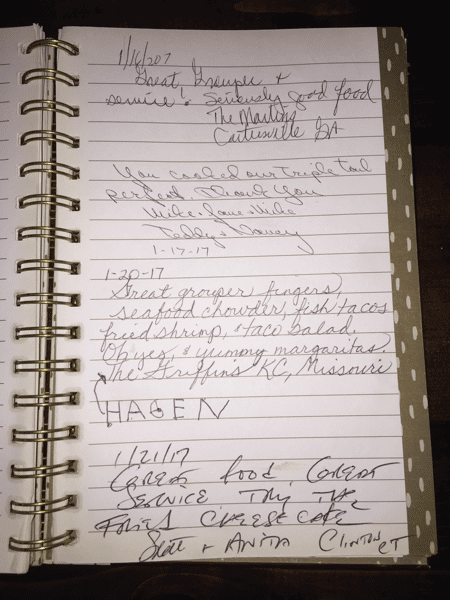 1/16/207
Great Grouper +
service! Seriously good food
The Martins
Cartersville GA
You cooked our triple tail
perfect. Thank You
Mike + Jane + Mike
Teddy +
1-17-17
1-20-17
Great grouper fingers,
seafood chowder, fish tacos
fried shrimp, + taco salad.
Oh yes, + yummy margaritas.
The Griffins KC, Missouri
HAGEN
1/21/17
GREAT food, GREAT
SERVICE TRY THE
CHEESE CAKE
+ ANITA CLINTON CT